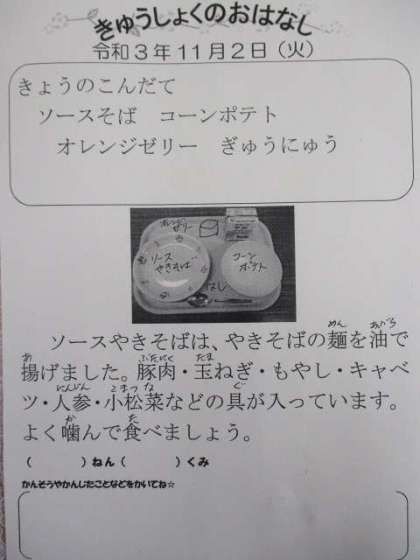 きゅうしょくのおはなし
令和3年11月2日（火）
きょうのこんだて
ソースそば　コーンポテト
オレンジゼリー　ぎゅうにゅう
オレンジ
ゼリー
ソース
やきそば
コーン
ポテト
はし
ソースやきそばは、やきそばの麺を油で
揚げました。豚肉・玉ねぎ・もやし・キャベ
ツ・人参・小松菜などの具が入っています。
よく噛んで食べましょう。
（　　　）ねん（　　　）くみ
かんそうやかんじたことなどをかいてね☆